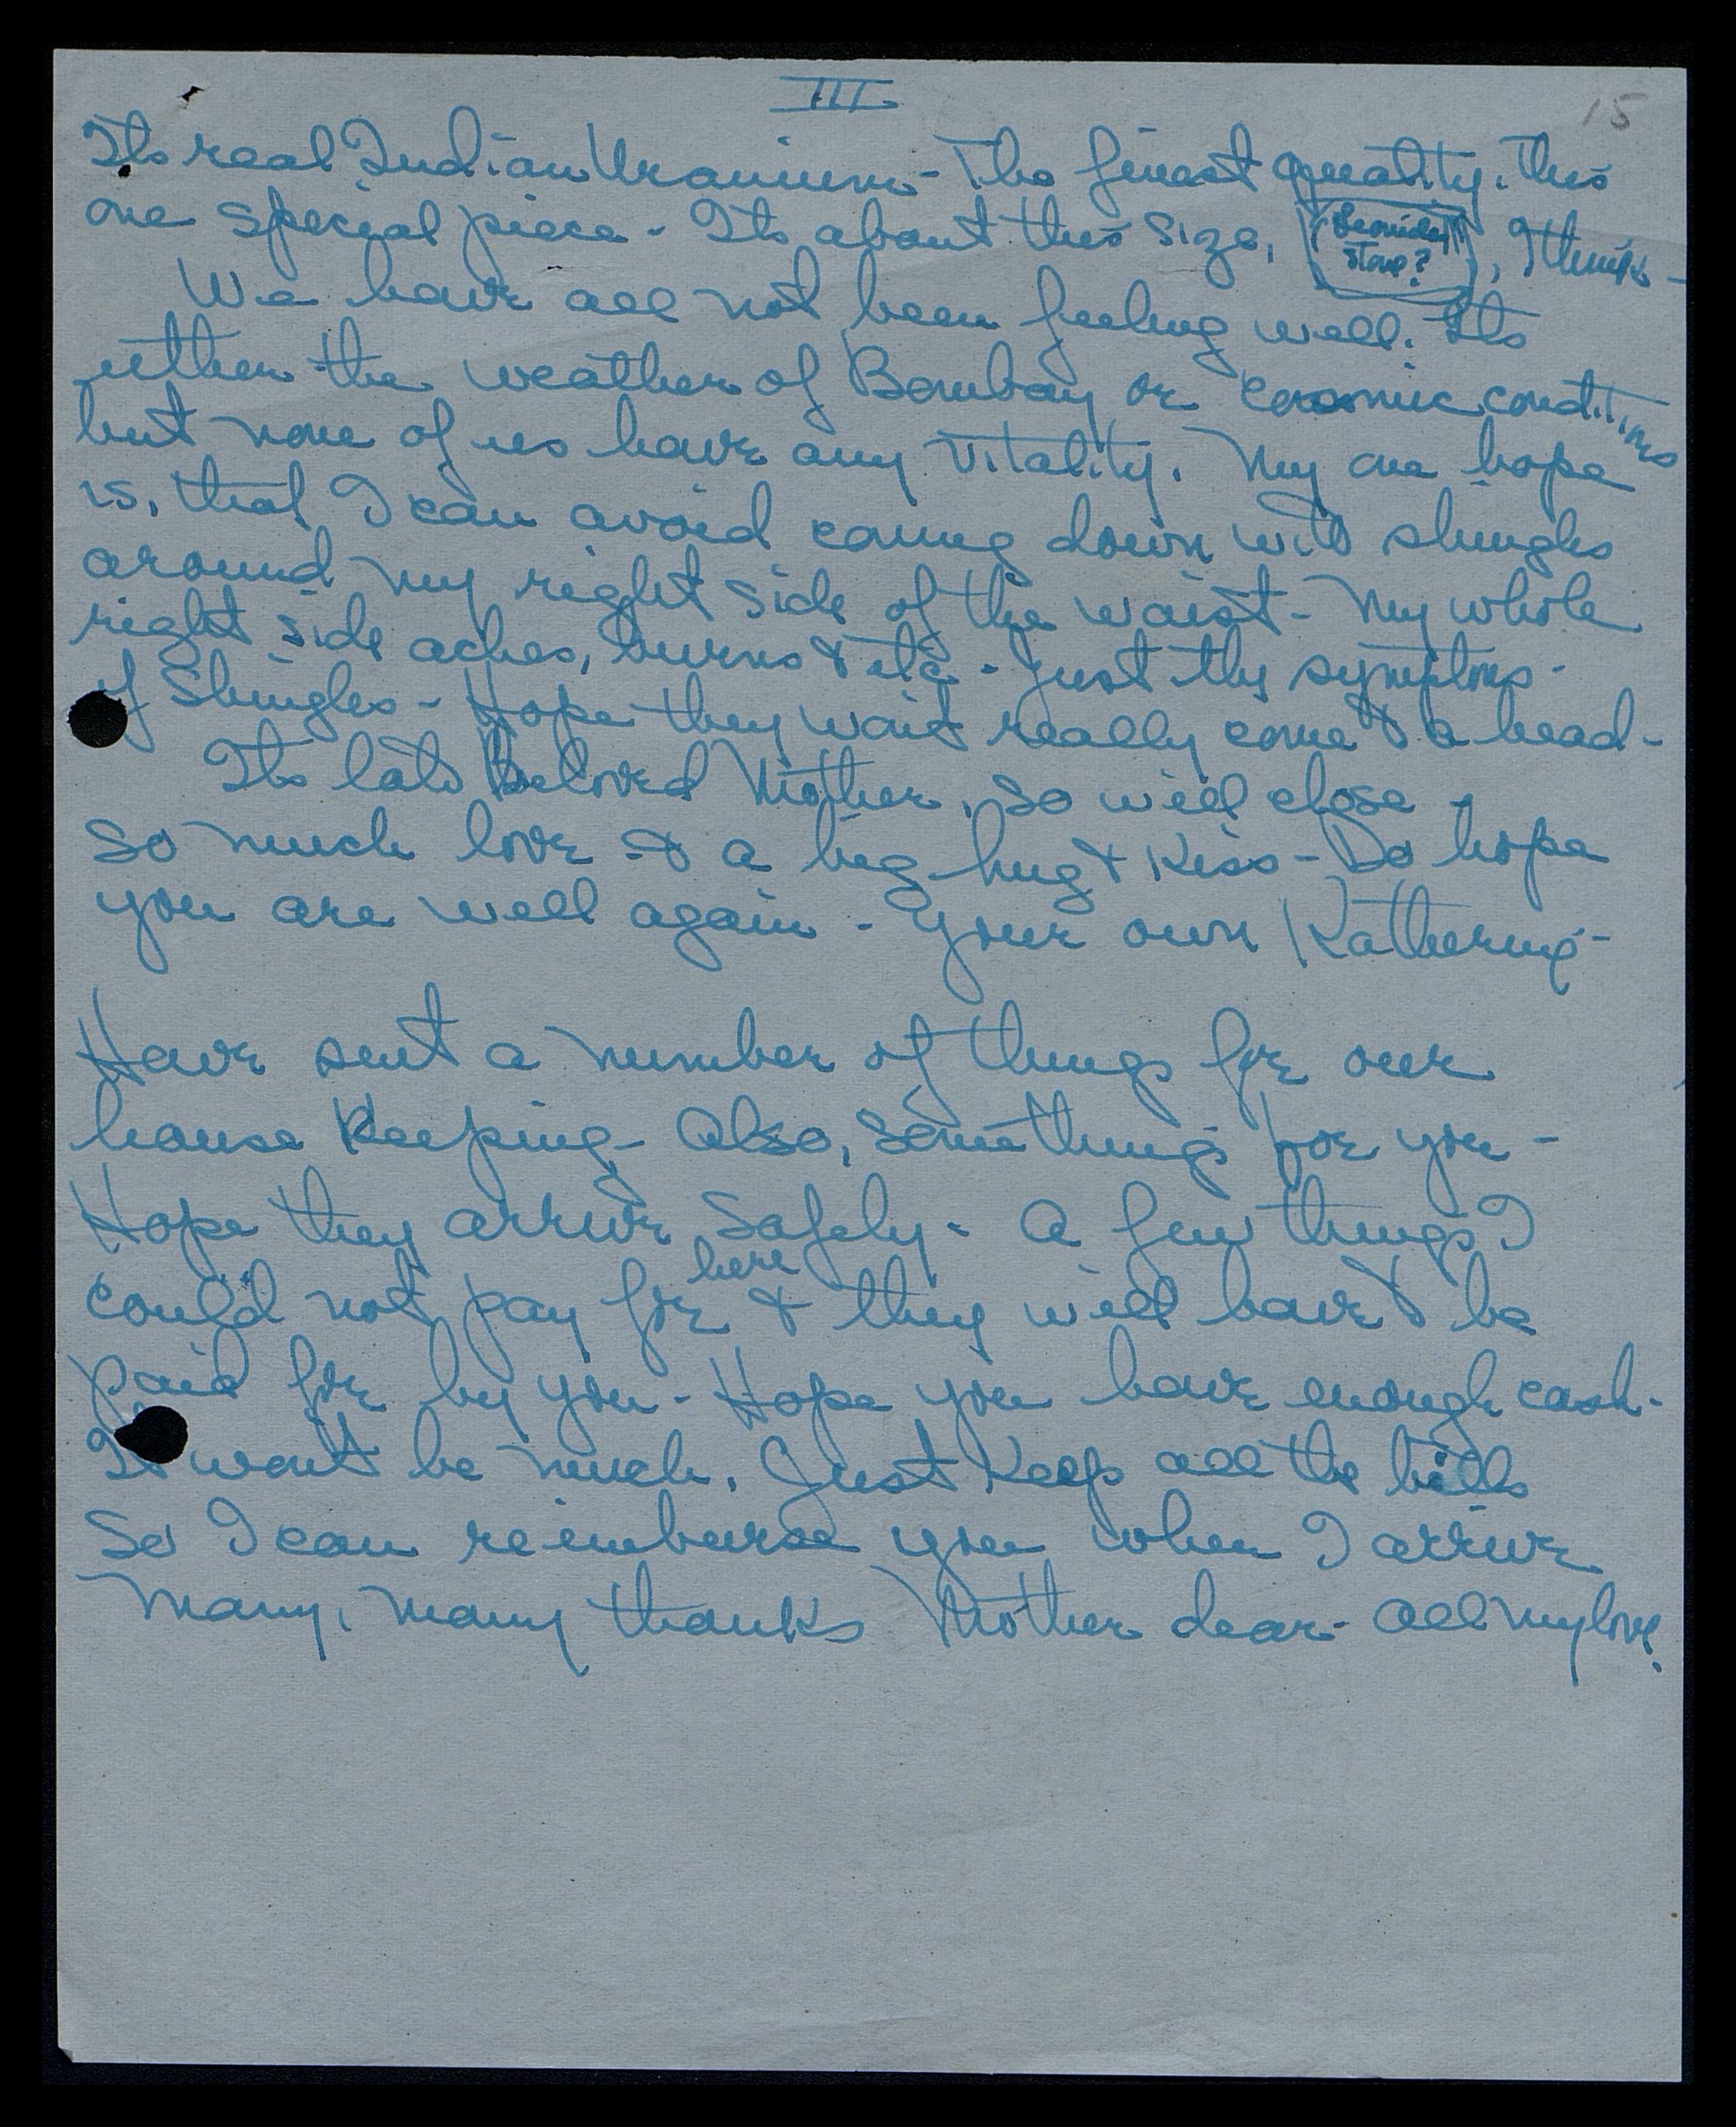 III
15
Its real Indian Uranium - The finest quality. This
one special piece - Its about this size, Stone?, I think -
We have all not been feeling well. Its
either the weather of Bombay or cosmic conditions
but none of us have any vitality. My one hope
is, that I can avoid coming down with shingles
around my right side of the waist - My whole
right side aches, burns & etc - Just the symptoms -
of Shingles - Hope they wait really come to a head -
Its late Beloved Mother, so will close
So much love & a big hug & Kiss - Do hope
you are well again - Your own Katherine -
Have sent a number of things for our
house Keeping - Also, somethings for you -
Hope they arrive safely - A few things I
could not pay for here & they will have to be
paid for by you - Hope you have enough cash -
It won't be much. Just Keep all the bills
So I can reimburse you when I arrive
Many, many thanks Mother dear - All my love.